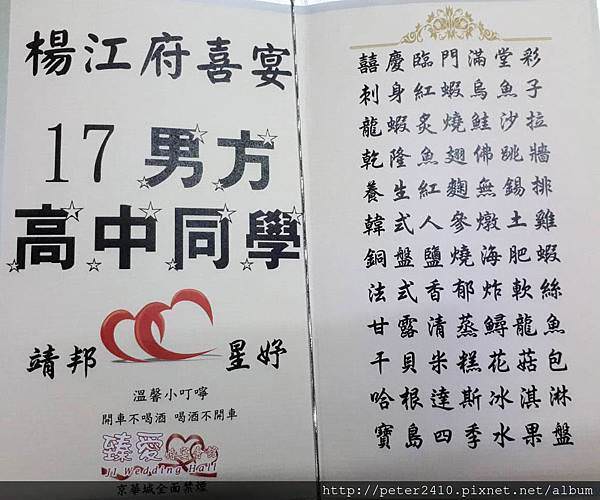 楊江府喜宴
17 男方
高中同學
靖邦 星妤
溫馨小叮嚀
開車不喝酒 喝酒不開車
臻愛
JI Wedding Hall
京華城全面禁煙
囍慶臨門滿堂彩
刺身紅蝦烏魚子
龍蝦炙燒鮭沙拉
乾隆魚翅佛跳牆
養生紅麴無錫排
韓式人參燉土雞
銅盤鹽燒海肥蝦
法式香郁炸軟絲
甘露清蒸鱘龍魚
干貝米糕花菇包
哈根達斯冰淇淋
寶島四季水果盤
http://peter2410.pixnet.net/album